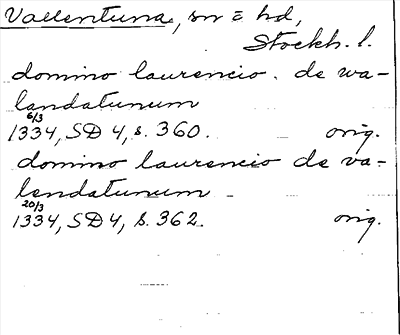 Vallentuna, sn = hd,
Stockh. l.
domino laurencio . de wa-
landatunum
6/3
1334, SD 4, s. 360. orig.
domino laurencio de va-
lendatunum
20/3
1334, SD 4, s. 362. orig.